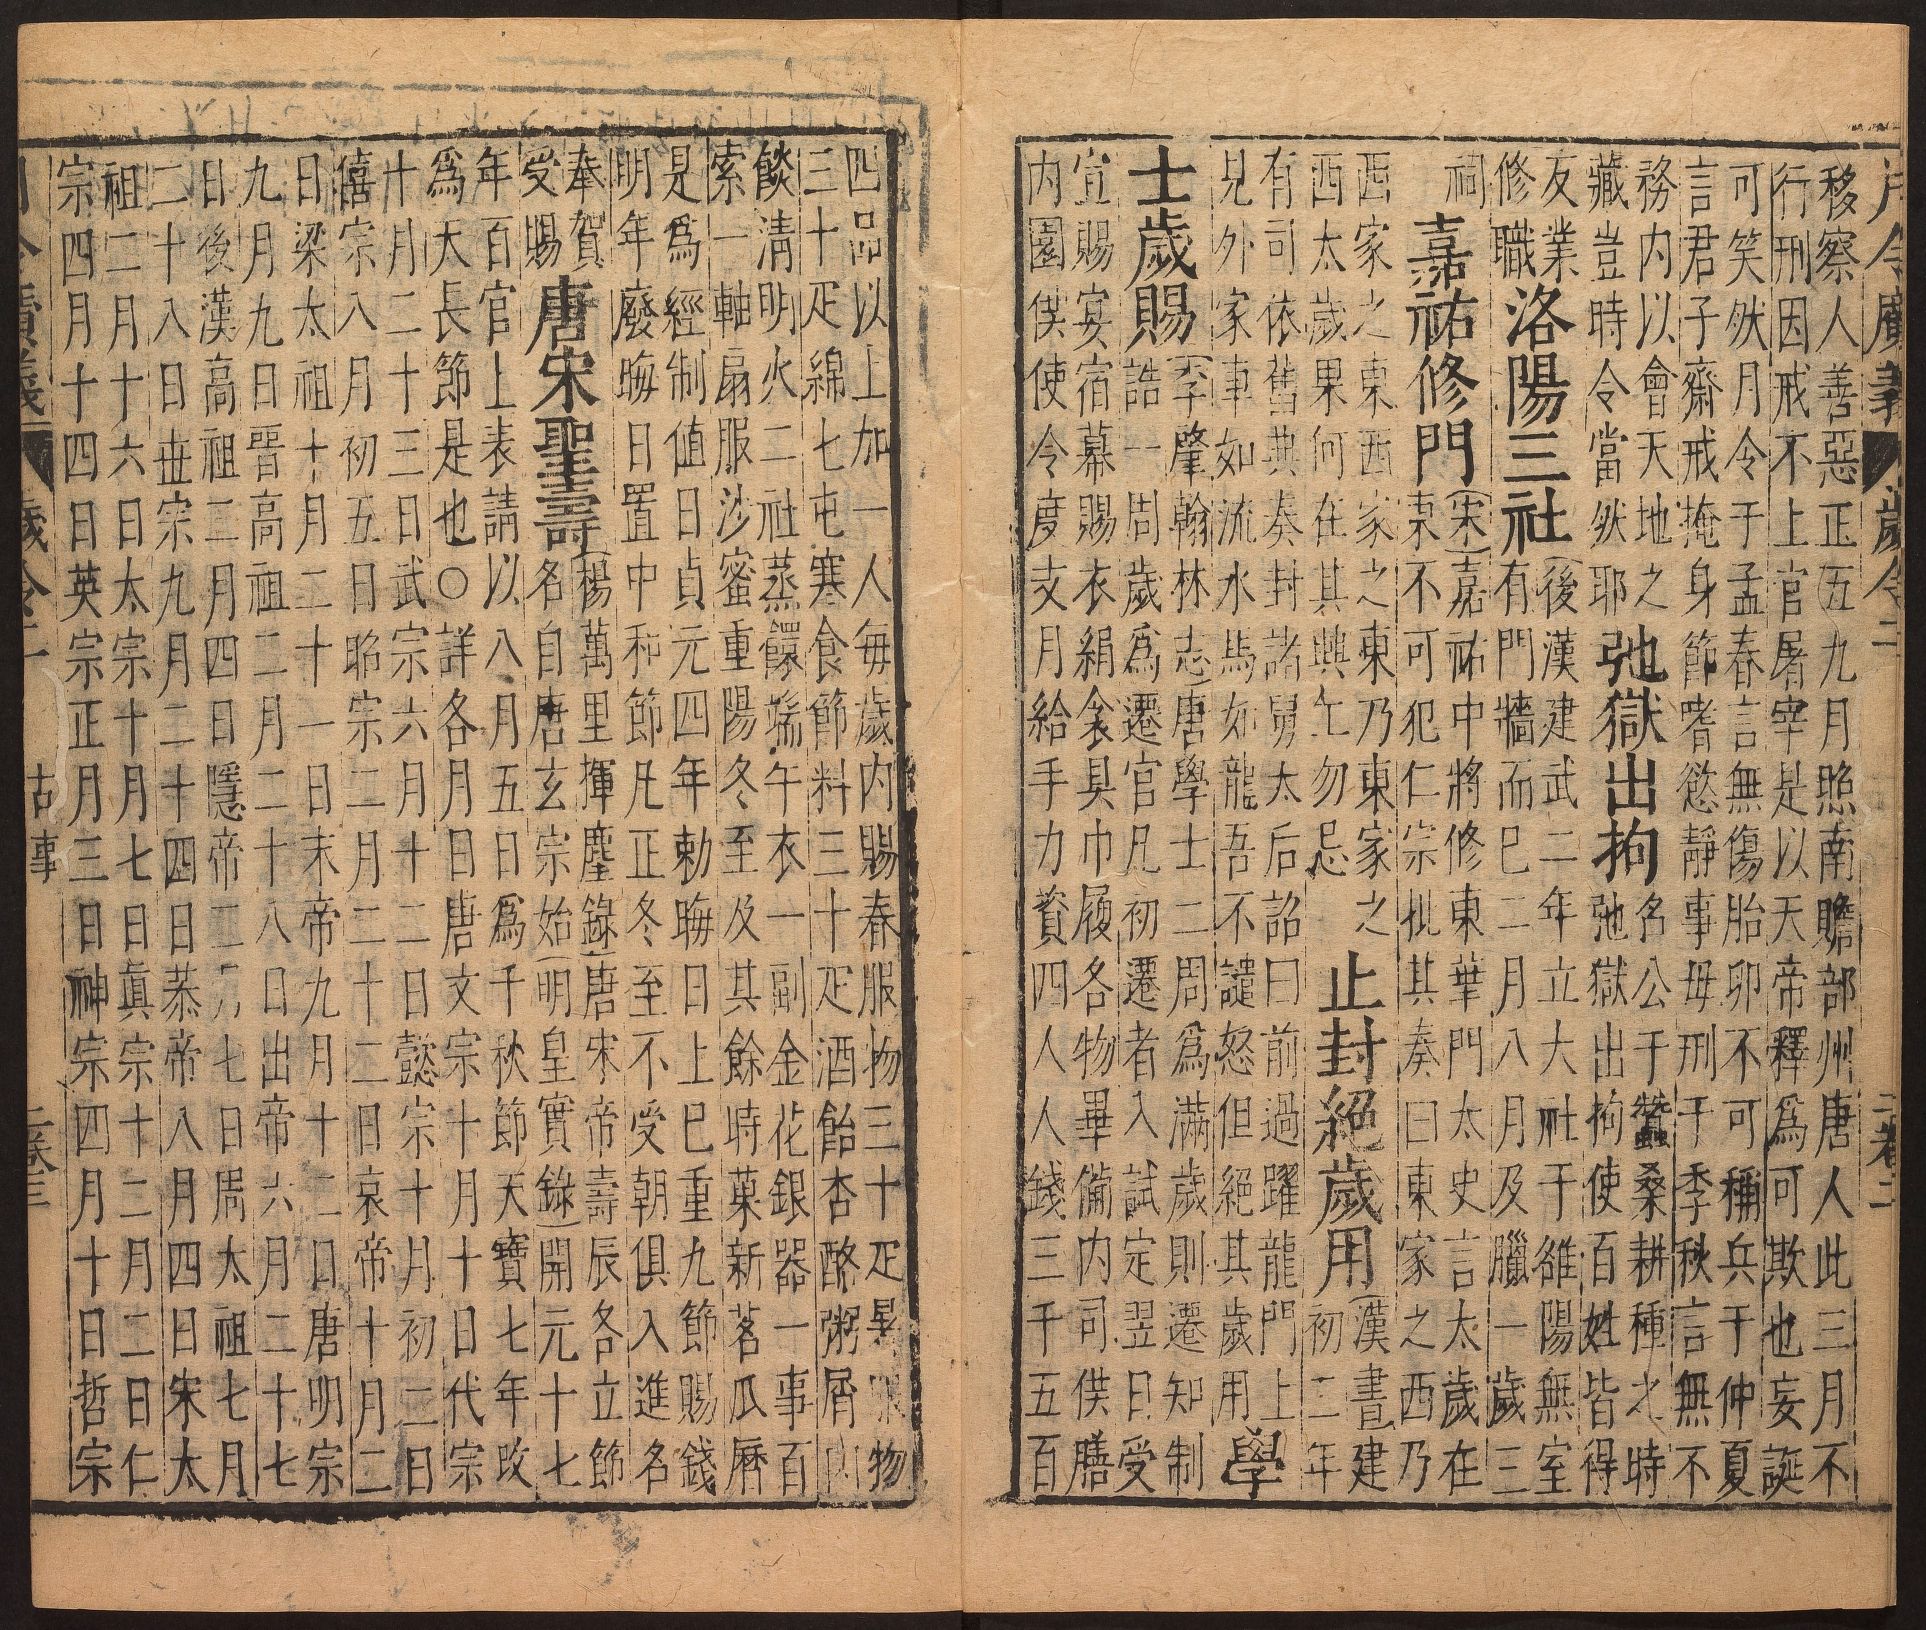 月令廣義 歲令二 二卷二
移察人善惡正五九月照南贍部州唐人此三月不
行刑因戒不上官屠宰是以天帝釋爲可欺也妄誕
可笑然月令于孟春言無傷胎卵不可稱兵于仲夏
言君子齋戒掩身節嗜慾靜事毋刑于季秋言無不
務内以會天地之
藏豈時令當然耶
弛獄出拘
名公于蠶桑耕種之時
弛獄出拘使百姓皆得
友業
修職
洛陽三社
(後漢)建武二年立大社于雒陽無室
有門牆而已二月八月及臘一歲三
祠
嘉祐修門
(宋)嘉祐中將修東華門太史言太歲在
東不可犯仁宗批其奏曰東家之西乃
西家之東西家之東乃東家之
西太歲果何在其興工勿忌
止封絕歲用
(漢書)建
初二年
有司依舊典奏封諸舅太后詔曰前過躍龍門上
見外家車如流水馬如龍吾不譴怒但絕其歲用
學士歲賜
(李肇翰林志)唐學士二周爲滿歲則遷知制
誥一周歲爲遷官凡初遷者入試定翌日受
宜賜宴宿幕賜衣絹衾具巾履各物畢備内司供膳
内園供使令度支月給手力資四人人錢三千五百
四品以上加一人每歲内賜春服物三十疋暑服物
三十疋綿七屯寒食節料三十疋酒飴杏酪粥屑肉
餤清明火二社蒸饠端午衣一副金花銀器一事百
索一軸扇服沙蜜重陽冬至及其餘時菓新茗瓜曆
是爲經制值日貞元四年勅晦日上巳重九節賜錢
明年廢晦日置中和節凡正冬至不受朝俱入進名
奉賀
受賜
唐宋聖壽
(楊萬里揮麈錄)唐宋帝壽辰各立節
名自唐玄宗始(明皇實錄)開元十七
年百官上表請以八月五日爲千秋節天寶七年改
爲天長節是也○詳各月日唐文宗十月十日代宗
十月二十三日武宗六月十二日懿宗十月初二日
僖宗八月初五日昭宗二月二十二日哀帝十月二
日梁太祖十月二十一日末帝九月十二日唐明宗
九月九日晋高祖二月二十八日出帝六月二十七
日後漢高祖二月四日隱帝三月七日周太祖七月
二十八日世宗九月二十四日恭帝八月四日宋太
祖二月十六日太宗十月七日眞宗十二月二日仁
宗四月十四日英宗正月三日神宗四月十日哲宗
月令廣義 歲令二 古事 二卷三